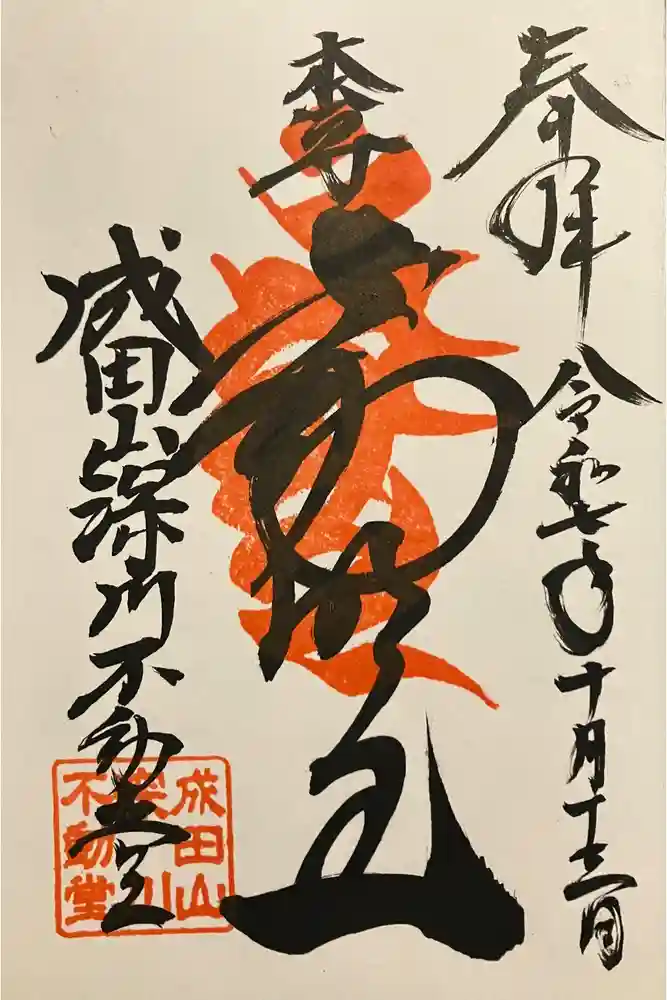 奉拝 令和七年十月十三日
本尊 不動明王
成田山深川不動堂
成田山
深川
不動堂